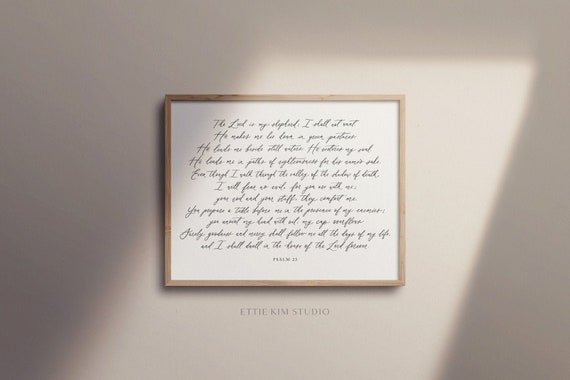 The Lord is my shepherd; I shall not want
He makes me lie down in green pastures.
He leads me beside still waters. He restores my soul.
He leads me in paths of righteousness for his name's sake.
Even though I walk through the valley of the shadow of death,
I will fear no evil, for you are with me;
your rod and your staff, they comfort me.
You prepare a table before me in the presence of my enemies;
you anoint my head with oil; my cup overflows.
Surely goodness and mercy shall follow me all the days of my life,
and I shall dwell in the house of the Lord forever.
PSALM 23
ETTIE KIM STUDIO